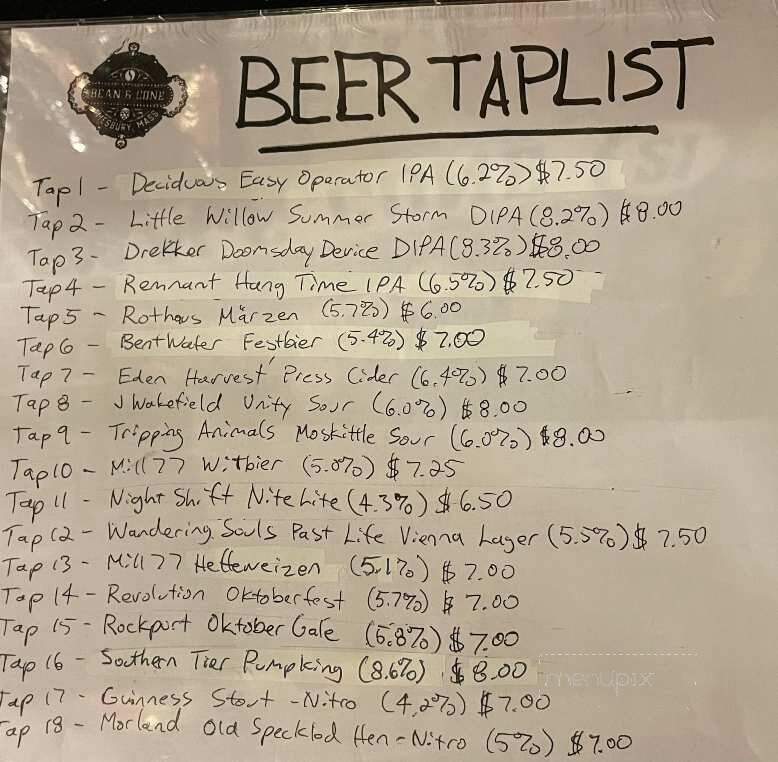 BEER TAPLIST
BEAN & CONE
MASS
Tap 1 - Deciduous Easy Operator IPA (6.2%) $7.50
Tap 2 - Little Willow Summer Storm DIPA (8.2%) $8.00
Tap 3 - Drekker Doomsday Device DIPA (8.3%) $8.00
Tap 4 - Remnant Hang Time IPA (6.5%) $7.50
Tap 5 - Rothaus Märzen (5.7%) $6.00
Tap 6 - BentWater Festbier (5.4%) $7.00
Tap 7 - Eden Harvest Press Cider (6.4%) $7.00
Tap 8 - J Wakefield Unity Sour (6.0%) $8.00
Tap 9 - Tripping Animals Moskittle Sour (6.0%) $8.00
Tap 10 - Mill 77 Witbier (5.0%) $7.25
Tap 11 - Night Shift Nite Lite (4.3%) $6.50
Tap 12 - Wandering Souls Past Life Vienna Lager (5.5%) $7.50
Tap 13 - Mill 77 Hefeweizen (5.1%) $7.00
Tap 14 - Revolution Oktoberfest (5.7%) $7.00
Tap 15 - Rockport Oktober Gale (5.8%) $7.00
Tap 16 - Southern Tier Pumpking (8.6%) $8.00
Tap 17 - Guinness Stout - Nitro (4.2%) $7.00
Tap 18 - Morland Old Speckled Hen - Nitro (5%) $7.00
menupix